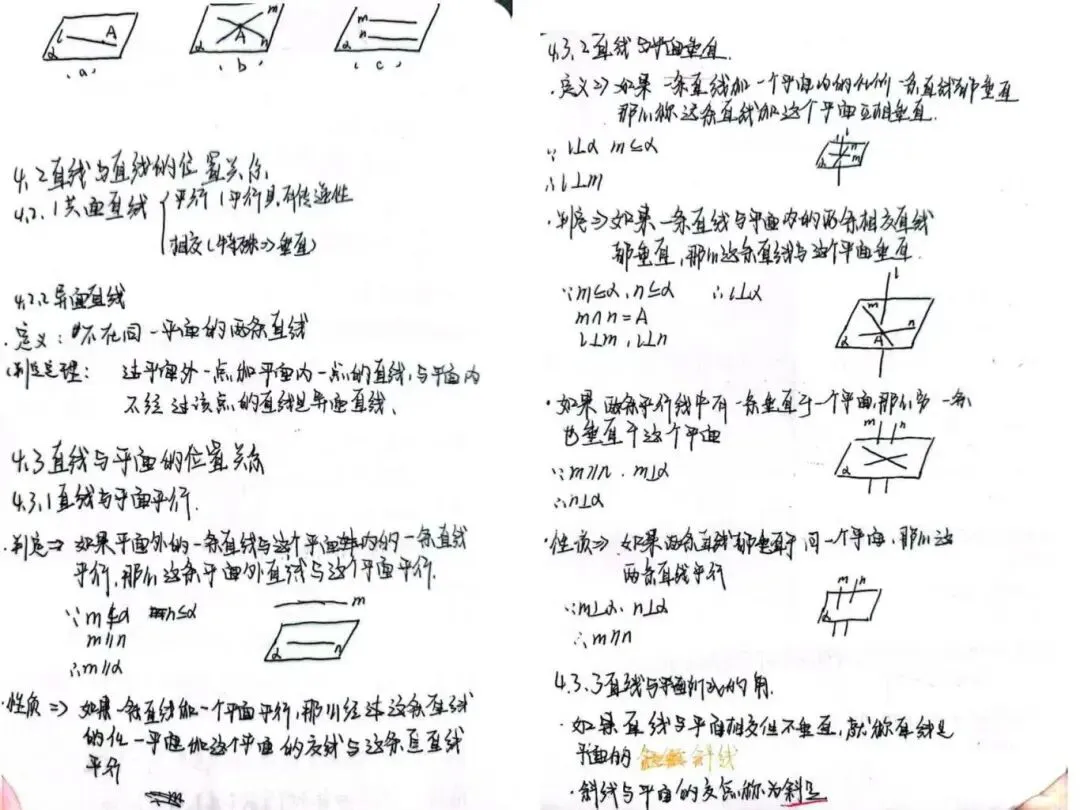 l A α
m A n α
m n α
(a) (b) (c)
4.2 直线与直线的位置关系
4.2.1 共面直线 平行(平行具有传递性
相交(特殊⇒垂直)
4.2.2 异面直线
定义:不在同一平面的两条直线
判定定理: 过平面外一点和平面内一点的直线,与平面内
不经过该点的直线是异面直线、
4.3 直线与平面的位置关系
4.3.1 直线与平面平行.
·判定⇒ 如果平面外的一条直线与这个平面内的一条直线
平行,那么这条平面外直线与这个平面平行.
∵m⊈α n⊆α
m∥n
∴m∥α
m
α n
·性质⇒ 如果一条直线和一个平面平行,那么经过这条直线
的任一平面和这个平面的交线与这条直线
平行
4.3.2 直线与平面垂直
·定义⇒ 如果一条直线和一个平面内的任何一条直线都垂直
那么称这条直线和这个平面互相垂直.
∵ l⊥α m⊆α
∴l⊥m
l n m α
·判定⇒如果一条直线与平面内的两条相交直线
都垂直,那么这条直线与这个平面垂直.
∵m⊆α,n⊆α ∴l⊥α
m∩n=A
l⊥m,l⊥n
l m n A α
·如果两条平行线中有一条垂直于一个平面,那么另一条
也垂直于这个平面
∵m∥n.m⊥α
∴n⊥α
m n α
·性质⇒ 如果两条直线都垂直于同一个平面,那么这
两条直线平行
∵m⊥α.n⊥α
∴m∥n
m n α
4.3.3 直线与平面所成的角.
·如果直线与平面相交但不垂直,就称直线是
平面的 斜线
·斜线与平面的交点称为斜足